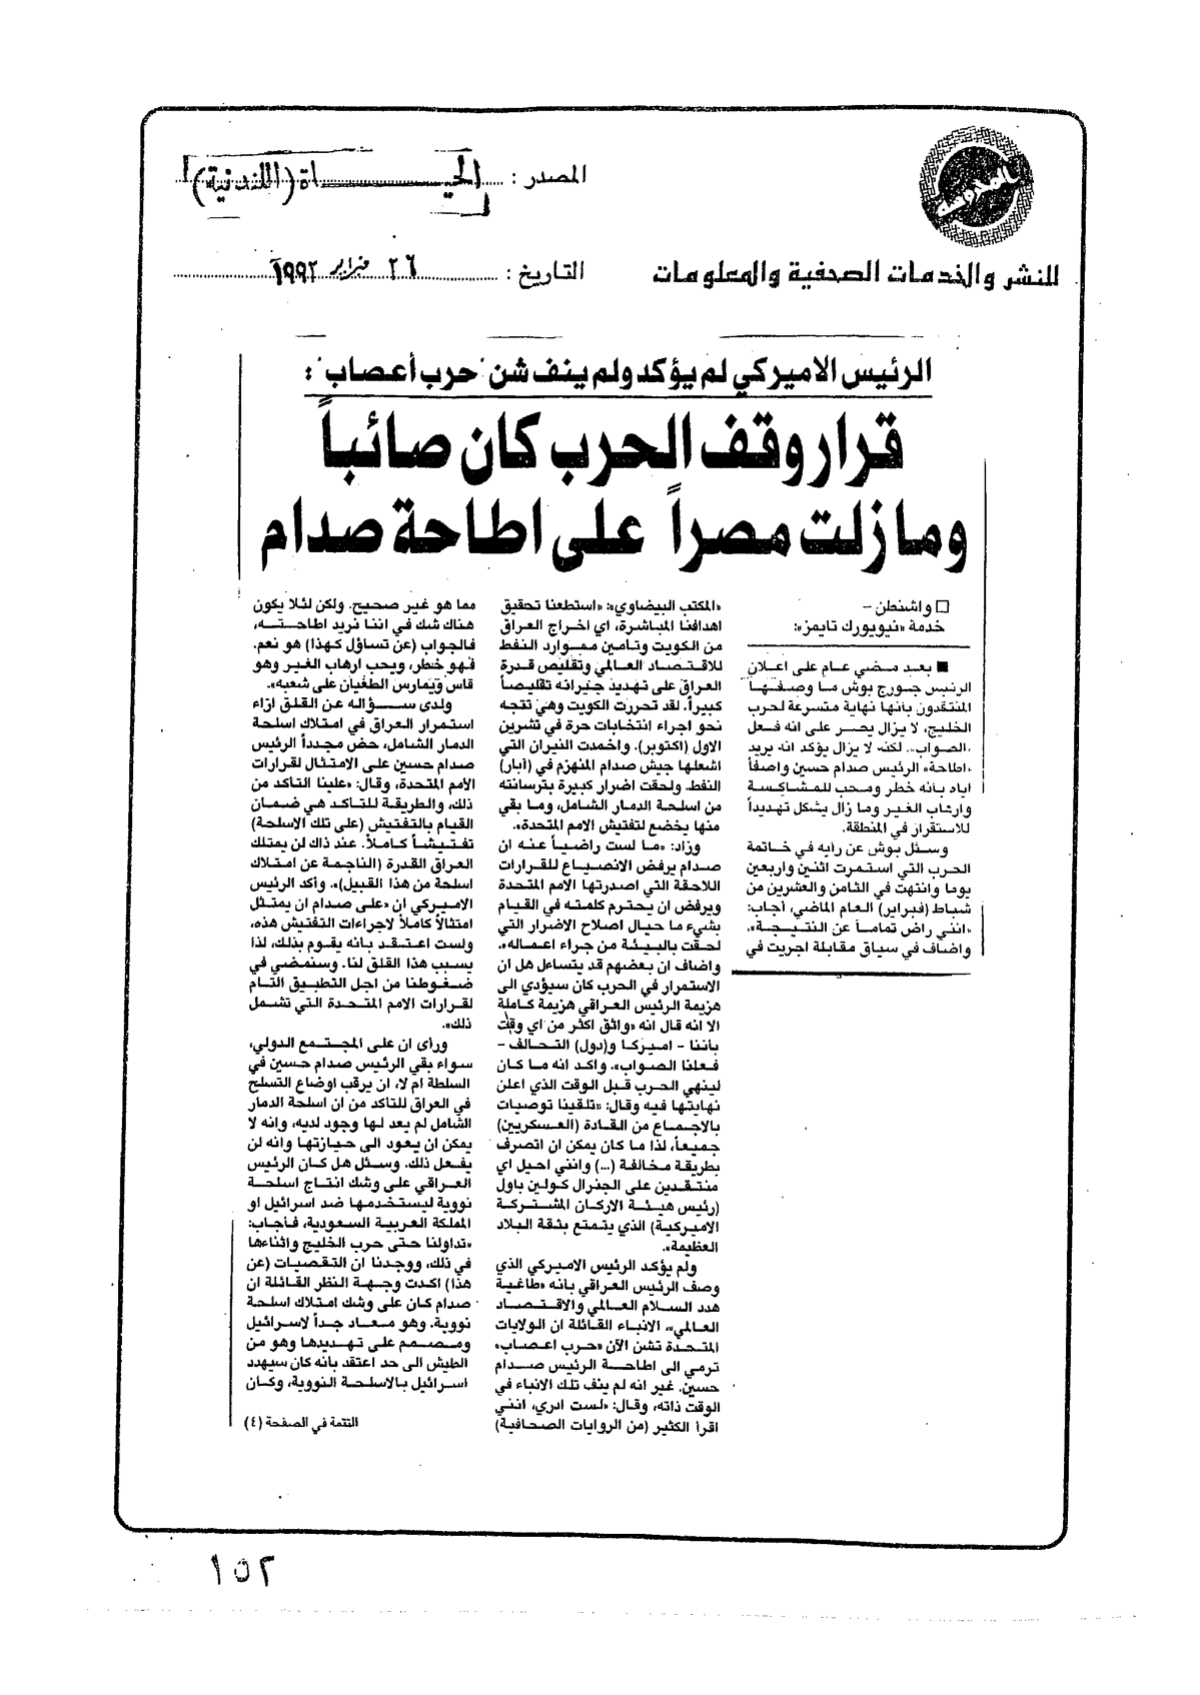 المصدر : الحيـــــاة (اللندنية)
التاريخ : ٢٦ فبراير ١٩٩٢
للنشر والخدمات الصحفية والمعلومات
الرئيس الاميركي لم يؤكد ولم ينف شن "حرب أعصاب" :
قرار وقف الحرب كان صائباً
وما زلت مصراً على اطاحة صدام
□ واشنطن -
خدمة «نيويورك تايمز»:
■ بعد مضي عام على اعلان
الرئيس جورج بوش ما وصفها
المنتقدون بأنها نهاية متسرعة لحرب
الخليج، لا يزال يصر على انه فعل
«الصواب».. لكنه لا يزال يؤكد انه يريد
«اطاحة» الرئيس صدام حسين واصفاً
اياه بأنه خطر ومحب للمشاكسة
وارهاب الغير وما زال يشكل تهديداً
للاستقرار في المنطقة.
وسئل بوش عن رأيه في خاتمة
الحرب التي استمرت اثنين واربعين
يوما وانتهت في الثامن والعشرين من
شباط (فبراير) العام الماضي، اجاب:
«انني راض تماماً عن النتيجة».
واضاف في سياق مقابلة اجريت في
«المكتب البيضاوي»: «استطعنا تحقيق
اهدافنا المباشرة، اي اخراج العراق
من الكويت وتامين موارد النفط
للاقتصاد العالمي وتقليص قدرة
العراق على تهديد جيرانه تقليصاً
كبيراً. لقد تحررت الكويت وهي تتجه
نحو اجراء انتخابات حرة في تشرين
الاول (اكتوبر). واخمدت النيران التي
اشعلها جيش صدام المنهزم في (آبار)
النفط. ولحقت اضرار كبيرة بترسانته
من اسلحة الدمار الشامل، وما بقي
منها يخضع لتفتيش الامم المتحدة».
وزاد: «ما لست راضياً عنه ان
صدام يرفض الانصياع للقرارات
اللاحقة التي اصدرتها الامم المتحدة
ويرفض ان يحترم كلمته في القيام
بشيء ما حيال اصلاح الاضرار التي
لحقت بالبيئة من جراء اعماله».
واضاف ان بعضهم قد يتساءل هل ان
الاستمرار في الحرب كان سيؤدي الى
هزيمة الرئيس العراقي هزيمة كاملة
الا انه قال انه «واثق اكثر من اي وقت
بأننا - اميركا و(دول) التحالف -
فعلنا الصواب». واكد انه ما كان
لينهي الحرب قبل الوقت الذي اعلن
نهايتها فيه وقال: «تلقينا توصيات
بالاجماع من القادة (العسكريين)
جميعاً، لذا ما كان يمكن ان اتصرف
بطريقة مخالفة (...) وانني احيل اي
منتقدين على الجنرال كولين باول
(رئيس هيئة الاركان المشتركة
الاميركية) الذي يتمتع بثقة البلاد
العظيمة».
ولم يؤكد الرئيس الاميركي الذي
وصف الرئيس العراقي بانه «طاغية
هدد السلام العالمي والاقتصاد
العالمي»، الانباء القائلة ان الولايات
المتحدة تشن الآن «حرب اعصاب»
ترمي الى اطاحة الرئيس صدام
حسين. غير انه لم ينف تلك الانباء في
الوقت ذاته، وقال: «لست ادري، انني
اقرأ الكثير (من الروايات الصحافية)
مما هو غير صحيح. ولكن لئلا يكون
هناك شك في اننا نريد اطاحته،
فالجواب (عن تساؤل كهذا) هو نعم.
فهو خطر، ويحب ارهاب الغير وهو
قاس ويمارس الطغيان على شعبه».
ولدى سؤاله عن القلق ازاء
استمرار العراق في امتلاك اسلحة
الدمار الشامل، حض مجدداً الرئيس
صدام حسين على الامتثال لقرارات
الأمم المتحدة، وقال: «علينا التاكد من
ذلك، والطريقة للتاكد هي ضمان
القيام بالتفتيش (على تلك الاسلحة)
تفتيشاً كاملاً. عند ذاك لن يمتلك
العراق القدرة (الناجمة عن امتلاك
اسلحة من هذا القبيل)». وأكد الرئيس
الاميركي ان «على صدام ان يمتثل
امتثالاً كاملاً لاجراءات التفتيش هذه،
ولست اعتقد بانه يقوم بذلك، لذا
يسبب هذا القلق لنا. وسنمضي في
ضغوطنا من اجل التطبيق التام
لقرارات الامم المتحدة التي تشمل
ذلك».
ورأى ان على المجتمع الدولي،
سواء بقي الرئيس صدام حسين في
السلطة ام لا، ان يرقب اوضاع التسلح
في العراق للتاكد من ان اسلحة الدمار
الشامل لم يعد لها وجود لديه، وانه لا
يمكن ان يعود الى حيازتها وانه لن
يفعل ذلك. وسئل هل كان الرئيس
العراقي على وشك انتاج اسلحة
نووية ليستخدمها ضد اسرائيل او
المملكة العربية السعودية، فأجاب:
«تداولنا حتى حرب الخليج واثناءها
في ذلك، ووجدنا ان التقصيات (عن
هذا) اكدت وجهة النظر القائلة ان
صدام كان على وشك امتلاك اسلحة
نووية. وهو معاد جداً لاسرائيل
ومصمم على تهديدها وهو من
الطيش الى حد اعتقد بانه كان سيهدد
اسرائيل بالاسلحة النووية، وكان
التتمة في الصفحة (٤)
١٥٢